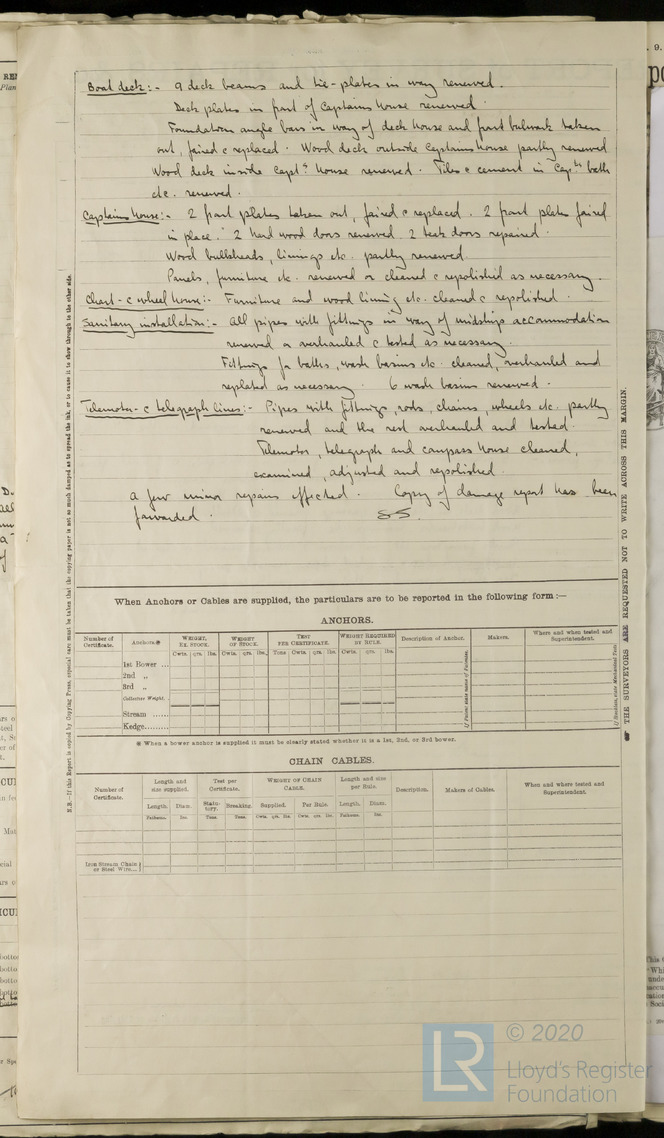 Boat deck:- 9 deck beams and tie-plates in way renewed.
Deck plates in front of Captains House renewed.
Foundation angle bars in way of deck house and front bulwark taken
out, faired & replaced. Wood deck outside Captains House partly renewed
Wood deck inside Capt.s House renewed. Tiles & cement in Capt.s bath
etc. renewed.
Captains House:- 2 front plates taken out, faired & replaced. 2 front plates faired
in place. 2 hard wood doors renewed 2 teak doors repaired.
Wood bulkheads, linings etc. partly renewed
Panels, furniture etc. renewed or cleaned & repolished as necessary.
Chart- & wheel House:- Furniture and wood lining etc. cleaned & repolished.
Sanitary installation:- All pipes with fittings in way of midship accommodation
renewed or overhauled & tested as necessary.
Fittings for baths, wash basins etc. cleaned, overhauled and
replated as necessary. 6 wash basins renewed.
Telemotor- & telegraph lines:- Pipes with fittings, rods, chains, wheels etc. partly
renewed and the rest overhauled and tested.
Telemotor, telegraph and compass House cleaned,
examined, adjusted and repolished.
A few minor repairs effected. Copy of damage report has been
forwarded.
When Anchors or Cables are supplied, the particulars are to be reported in the following form:—
ANCHORS.
Number of Certificate. Anchors* WEIGHT, EX. STOCK. WEIGHT OF STOCK. TEST PER CERTIFICATE. WEIGHT REQUIRED BY RULE. Description of Anchor. Makers. Where and when tested and Superintendent.
Cwts. qrs. lbs. Cwts. qrs. lbs. Tons Cwts. qrs. lbs. Cwts. qrs. lbs.
1st Bower ...
2nd „
3rd „
Collective Weight.
Stream ......
Kedge.........
* When a bower anchor is supplied it must be clearly stated whether it is a 1st, 2nd, or 3rd bower.
CHAIN CABLES.
Number of Certificate. Length and size supplied. Test per Certificate. WEIGHT OF CHAIN CABLE. Length and size per Rule. Description. Makers of Cables. When and where tested and Superintendent.
Length. Diam. Statutory. Breaking. Supplied. Per Rule. Length. Diam.
Fathoms. Ins. Tons. Tons. Cwts. qrs. lbs. Cwts. qrs. lbs. Fathoms. Ins.
Iron Stream Chain
or Steel Wire...
N.B.—If this Report is copied by Copying Press, especial care must be taken that the copying paper is not so much damped as to spread the ink, or to cause it to show through to the other side.
THE SURVEYORS ARE REQUESTED NOT TO WRITE ACROSS THIS MARGIN.
LR
© 2020
Lloyd's Register
Foundation